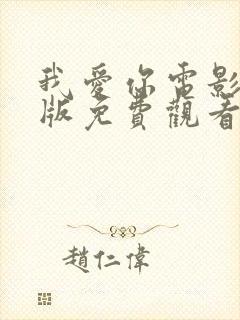 我愛你電影
版免費觀看
趙仁偉